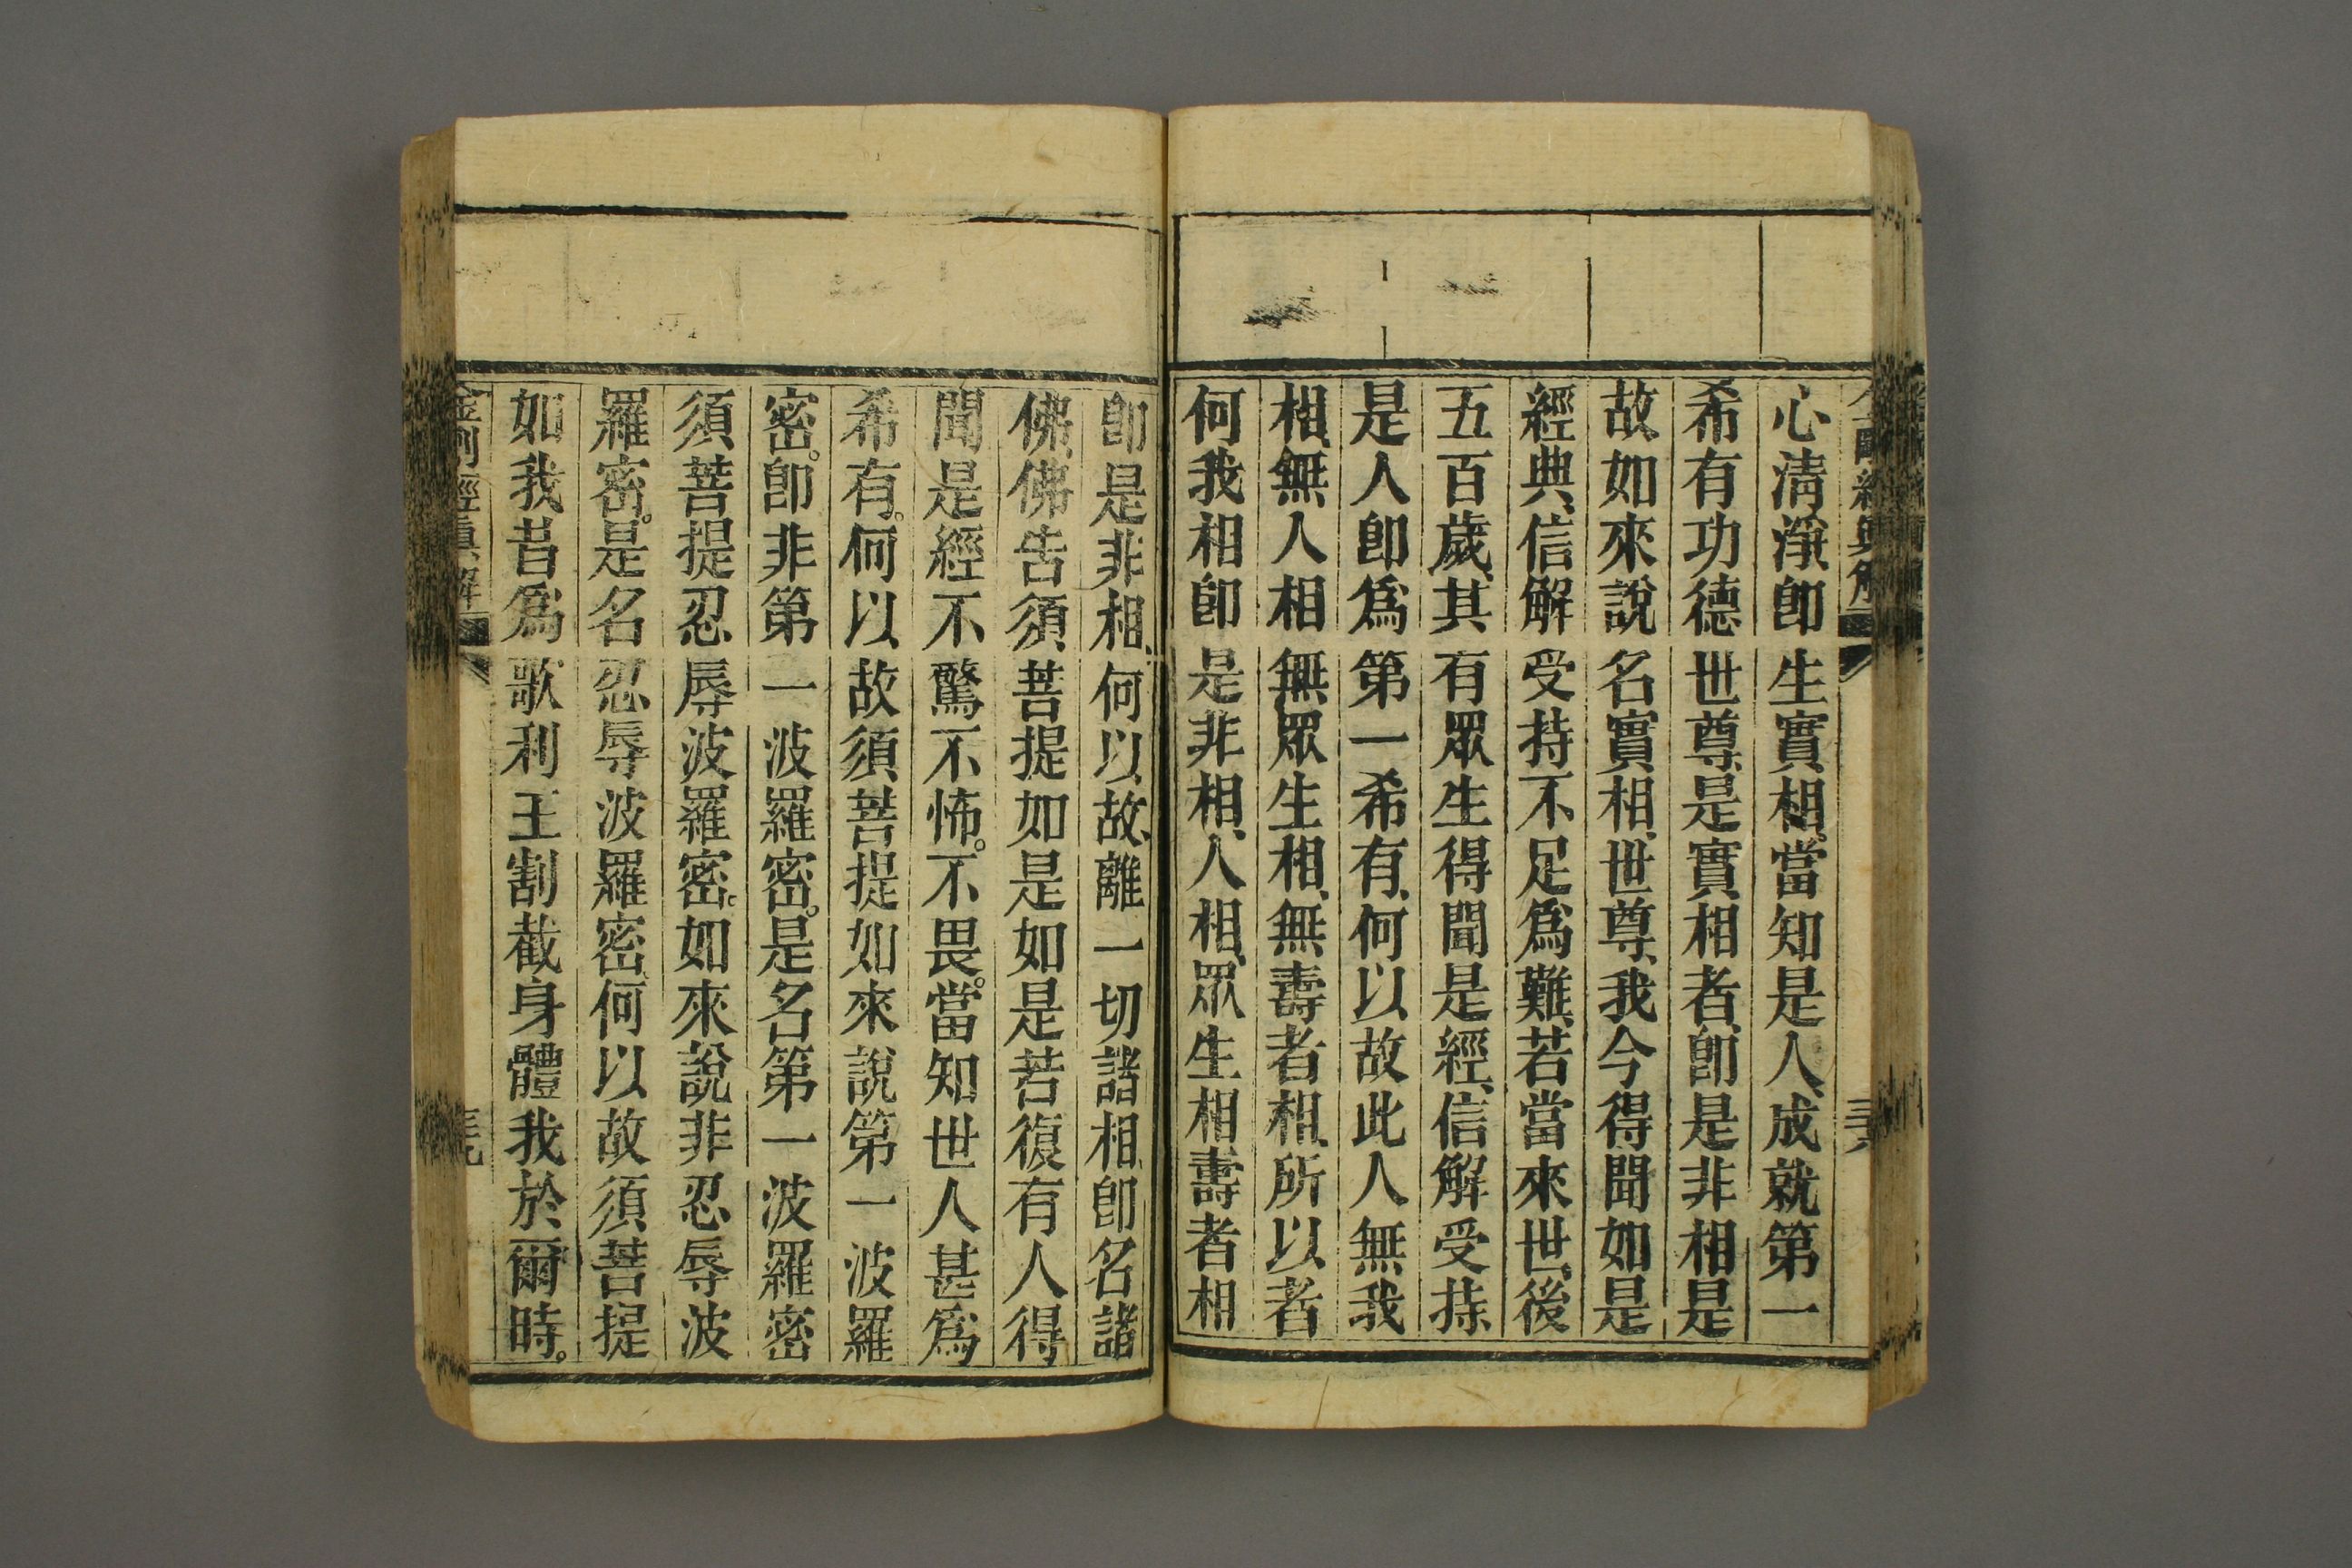 心清淨、卽生實相。當知是人、成就第一
希有功德世尊、是實相者、卽是非相是
故、如來說名實相、世尊、我今得聞如是
經典、信解受持不足爲難、若當來世、後
五百歲、其有眾生得聞是經、信解受持
是人卽爲第一希有、何以故此人無我
相、無人相無眾生相、無壽者相、所以者
何我相卽是非相、人相、眾生相壽者相
卽是非相、何以故、離一切諸相、卽名諸
佛、佛告須菩提如是如是若復有人得
聞是經不驚不怖。不畏。當知世人甚爲
希有。何以故須菩提如來說第一波羅
密。卽非第一波羅密。是名第一波羅密
須菩提忍辱波羅密。如來說非忍辱波
羅密。是名忍辱波羅密、何以故須菩提
如我昔爲歌利王割截身體我於爾時。
金剛經眞解